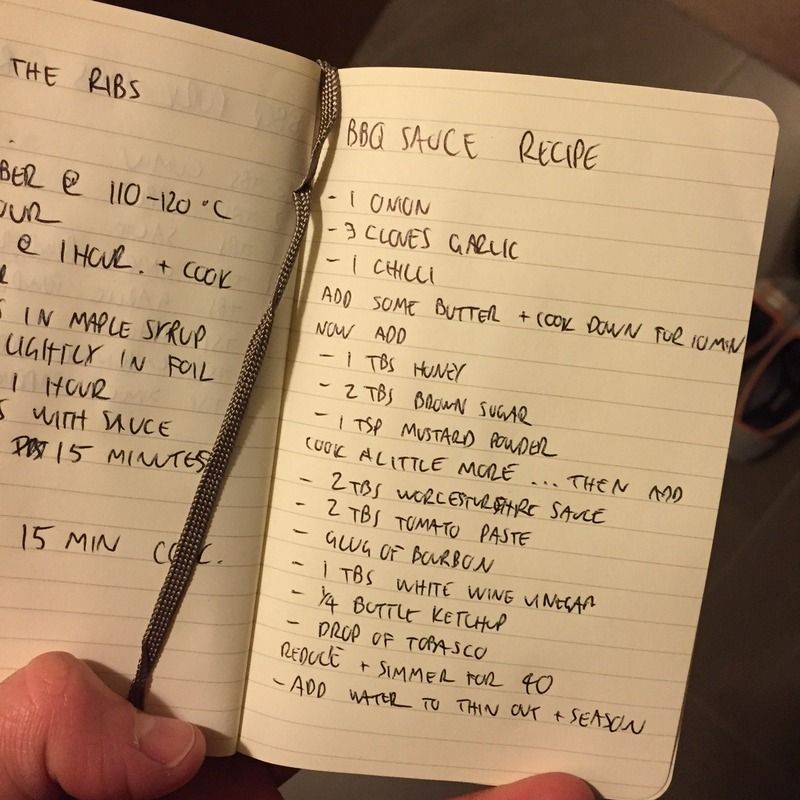 THE RIBS
BER @ 110-120°C
OUR
@ 1 HOUR. + COOK
R
S IN MAPLE SYRUP
LIGHTLY IN FOIL
1 HOUR
S WITH SAUCE
15 MINUTES
15 MIN
BBQ SAUCE RECIPE
- 1 ONION
- 3 CLOVES GARLIC
- 1 CHILLI
ADD SOME BUTTER + COOK DOWN FOR 10MIN
NOW ADD
- 1 TBS HONEY
- 2 TBS BROWN SUGAR
- 1 TSP MUSTARD POWDER
COOK A LITTLE MORE ... THEN ADD
- 2 TBS WORCESTURSHIRE SAUCE
- 2 TBS TOMATO PASTE
- GLUG OF BOURBON
- 1 TBS WHITE WINE VINEGAR
- 1/4 BOTTLE KETCHUP
- DROP OF TOBASCO
REDUCE + SIMMER FOR 40
- ADD WATER TO THIN OUT + SEASON